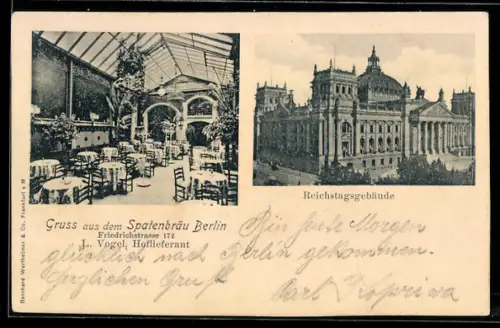 Reichstagsgebäude
Gruss aus dem Spatenbräu Berlin
Friedrichstrasse 172
L. Vogel, Hoflieferant
Bin heute Morgen
glücklich nach Berlin gekommen.
Herzlichen Gruß
Karl
Bernhard Wertheimer & Co. Frankfurt a M